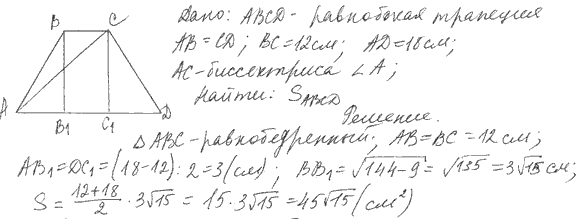 Дано: ABCD - равнобокая трапеция
AB = CD; BC = 12 см; AD = 18 см;
AC - биссектриса ∠A;
Найти: S_ABCD
Решение.
B C
A B₁ C₁ D
△ABC - равнобедренный; AB = BC = 12 см;
AB₁ = DC₁ = (18 - 12) : 2 = 3 (см); BB₁ = √(144 - 9) = √135 = 3√15 см;
S = (12 + 18)/2 · 3√15 = 15 · 3√15 = 45√15 (см²)